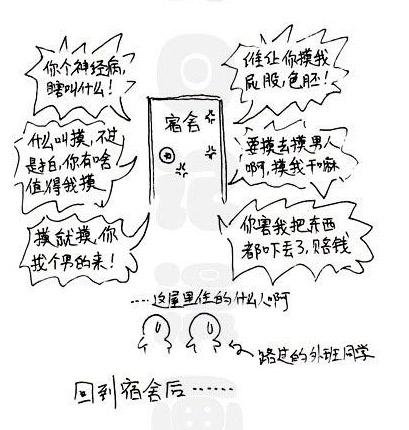 你个神经病,
瞎叫什么!
谁让你摸我
屁股,色胚!
宿舍
什么叫摸,不过
是拍,你有啥
值得我摸
要摸去摸男人
啊,摸我干嘛
摸就摸,你
找个男的来!
你害我把东西
都吓丢了,赔钱
....这屋里住的什么人啊
路过的外班同学
回到宿舍后......